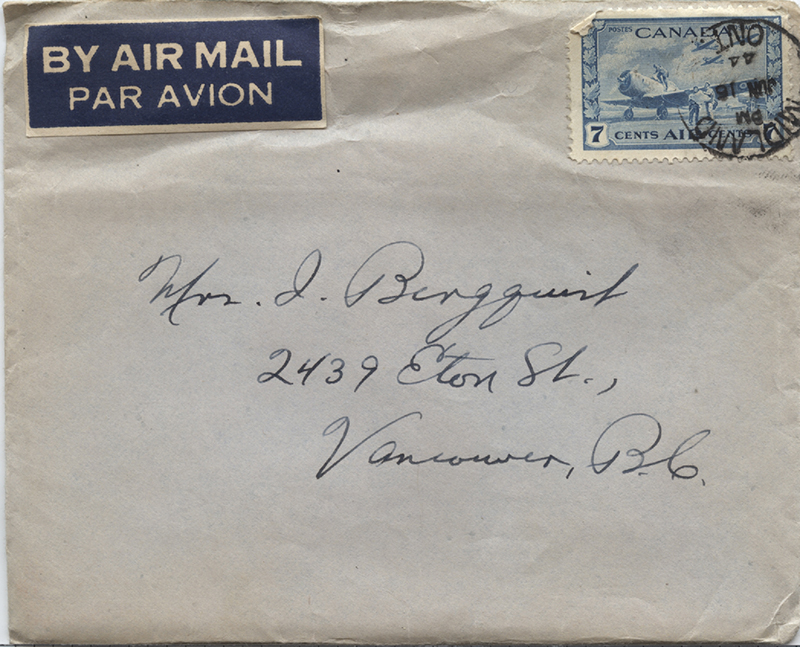 BY AIR MAIL
PAR AVION
POSTES CANADA
7 CENTS AIR CENTS
MIDLAND
PM
JUN 16
44
ONT.
Mrs. I. Bergquist
2439 Eton St.,
Vancouver, B.C.